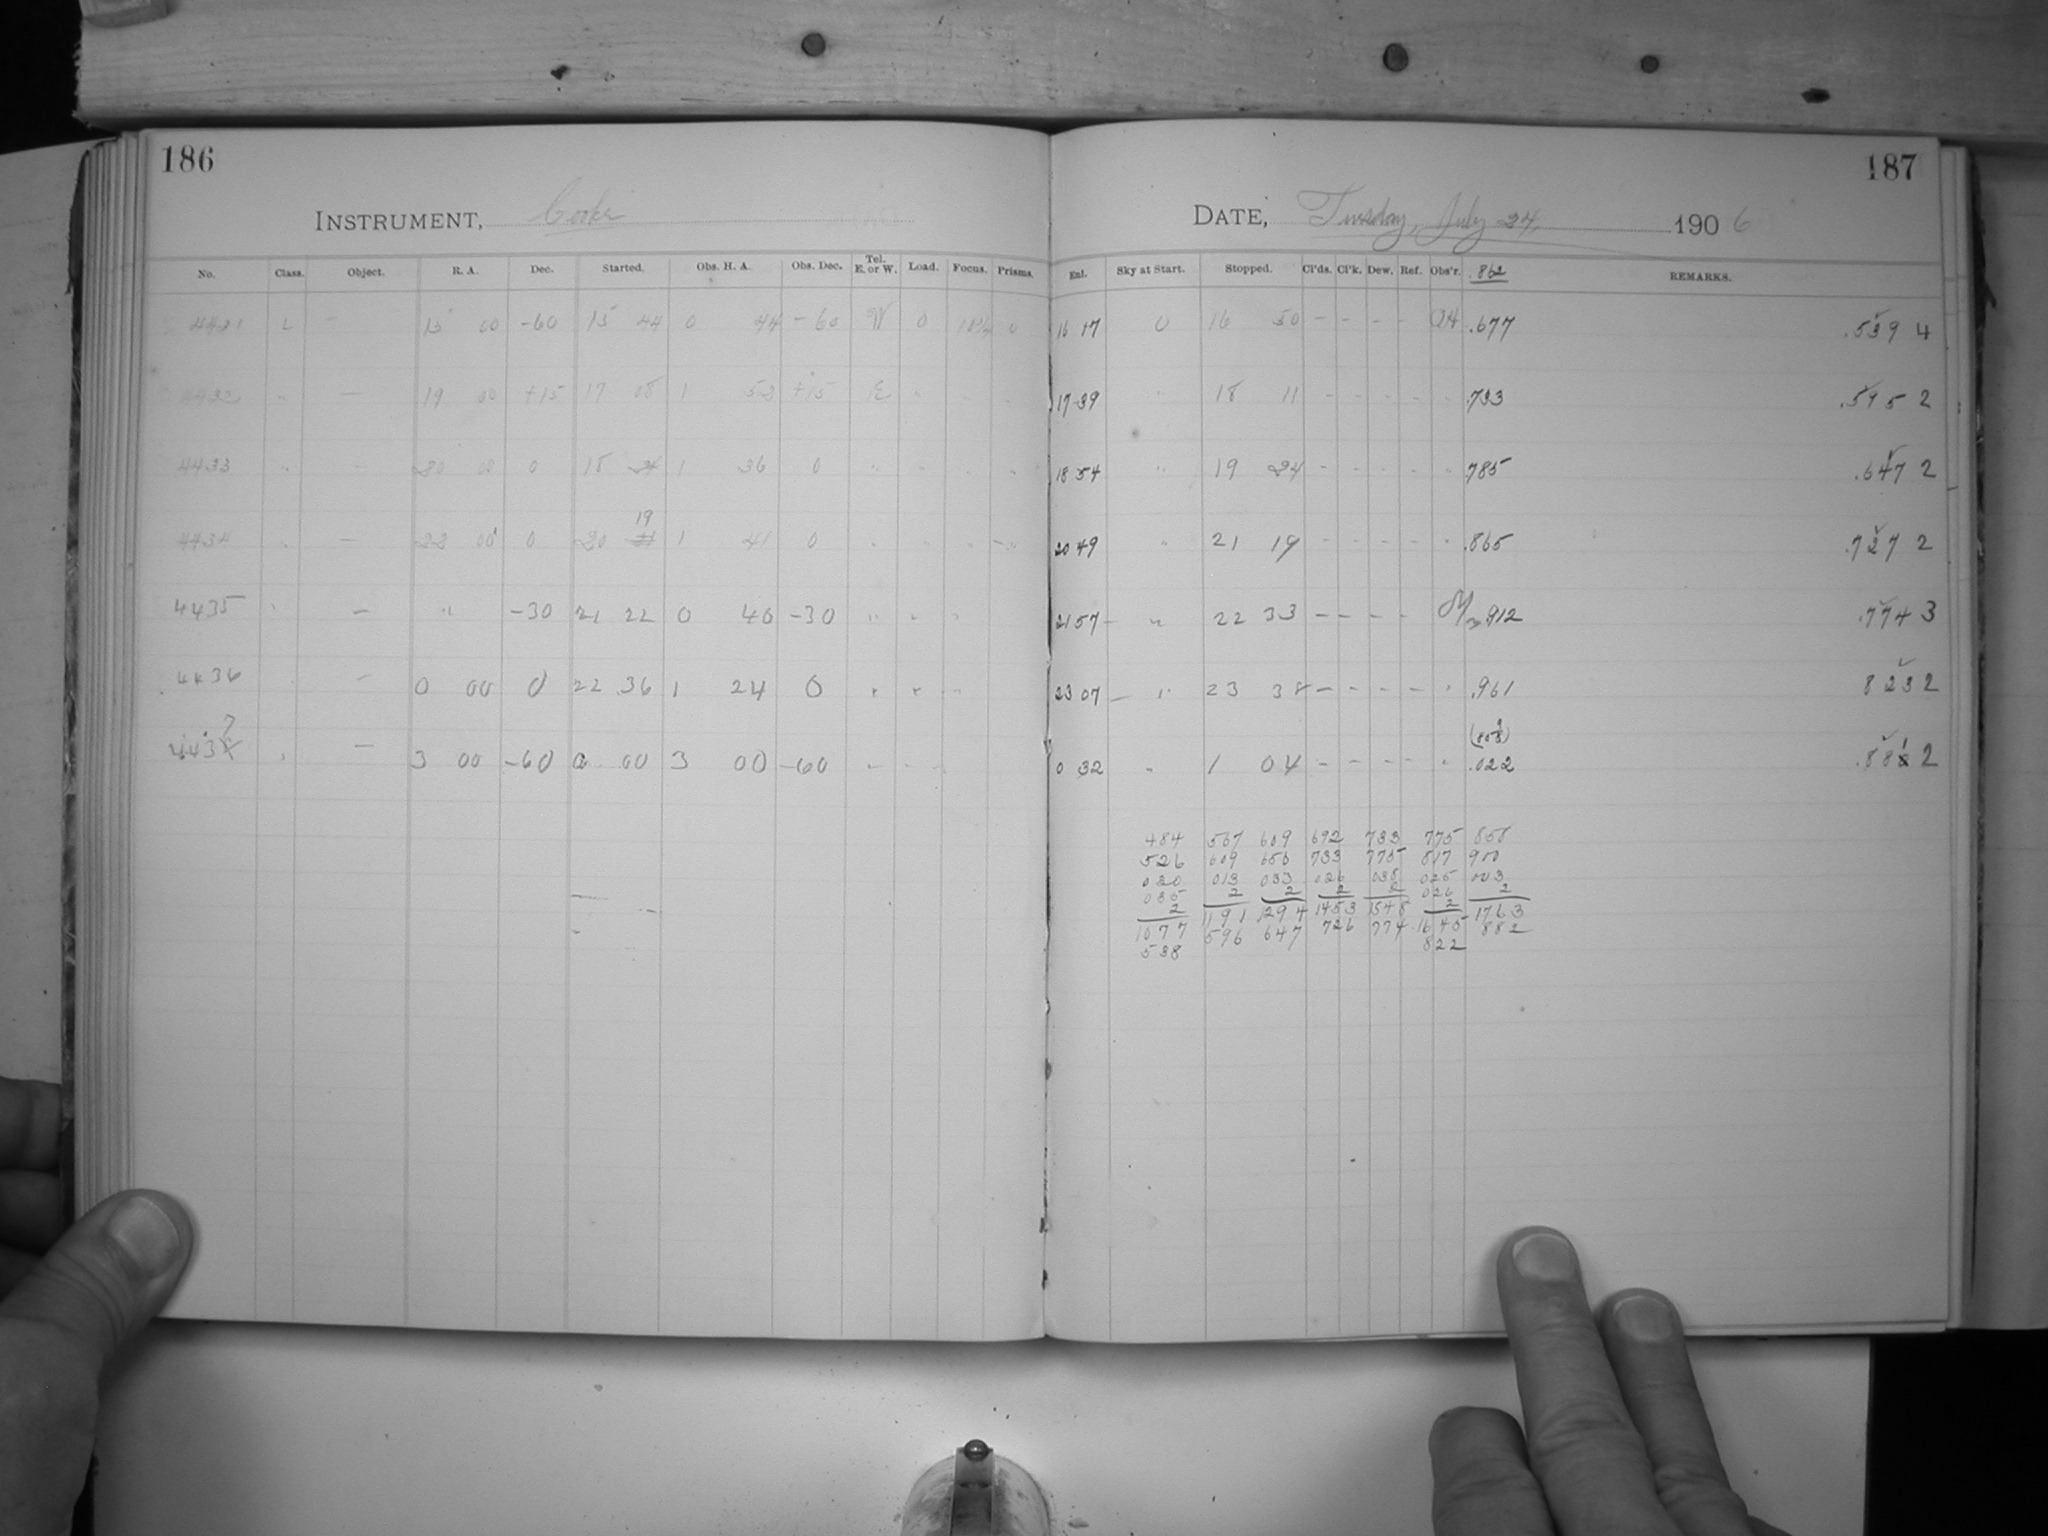 186
187
INSTRUMENT, Cooke
DATE, Tuesday, July 24, 1906
No. Class. Object. R. A. Dec. Started. Obs. H. A. Obs. Dec. Tel. E. or W. Load. Focus. Prisms. Enl. Sky at Start. Stopped. Cl'ds. Cl'k. Dew. Ref. Obs'r. .862 REMARKS.
4431 L - 15 00 -60 15 44 0 44 -60 W 0 0 16 17 0 16 50 - - - - .677 .539 4
4432 " - 19 00 +15 17 08 1 52 +15 E " 17 39 " 18 11 - - - - " .733 .595 2
4433 " - 20 00 0 18 24 1 36 0 " " " " 18 54 " 19 24 - - - - " .785 .647 2
19
4434 " - 22 00 0 20 21 1 41 0 " " " " 20 49 " 21 19 - - - - " .865 .727 2
4435 " - " -30 21 22 0 40 -30 " " " 21 57 - " 22 33 - - - - .912 .774 3
4436 - 0 00 0 22 36 1 24 0 " " " 23 07 - " 23 38 - - - - " .961 823 2
7
443 " - 3 00 -60 0 00 3 00 -60 " - - 0 32 " 1 04 - - - - " .022 .881 2
484 567 609 692 733 775 858
526 609 650 733 775 817 900
020 013 033 026 038 025 003
035 2 2 2 2 026 2
2 1191 1294 1453 1548 2 1763
1077 596 647 726 774 1645 882
538 822